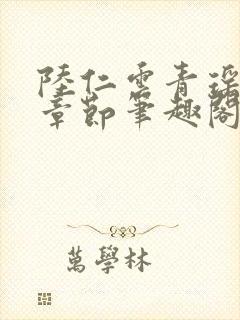 陸仁雲青瑶
章節筆趣閣
萬學林